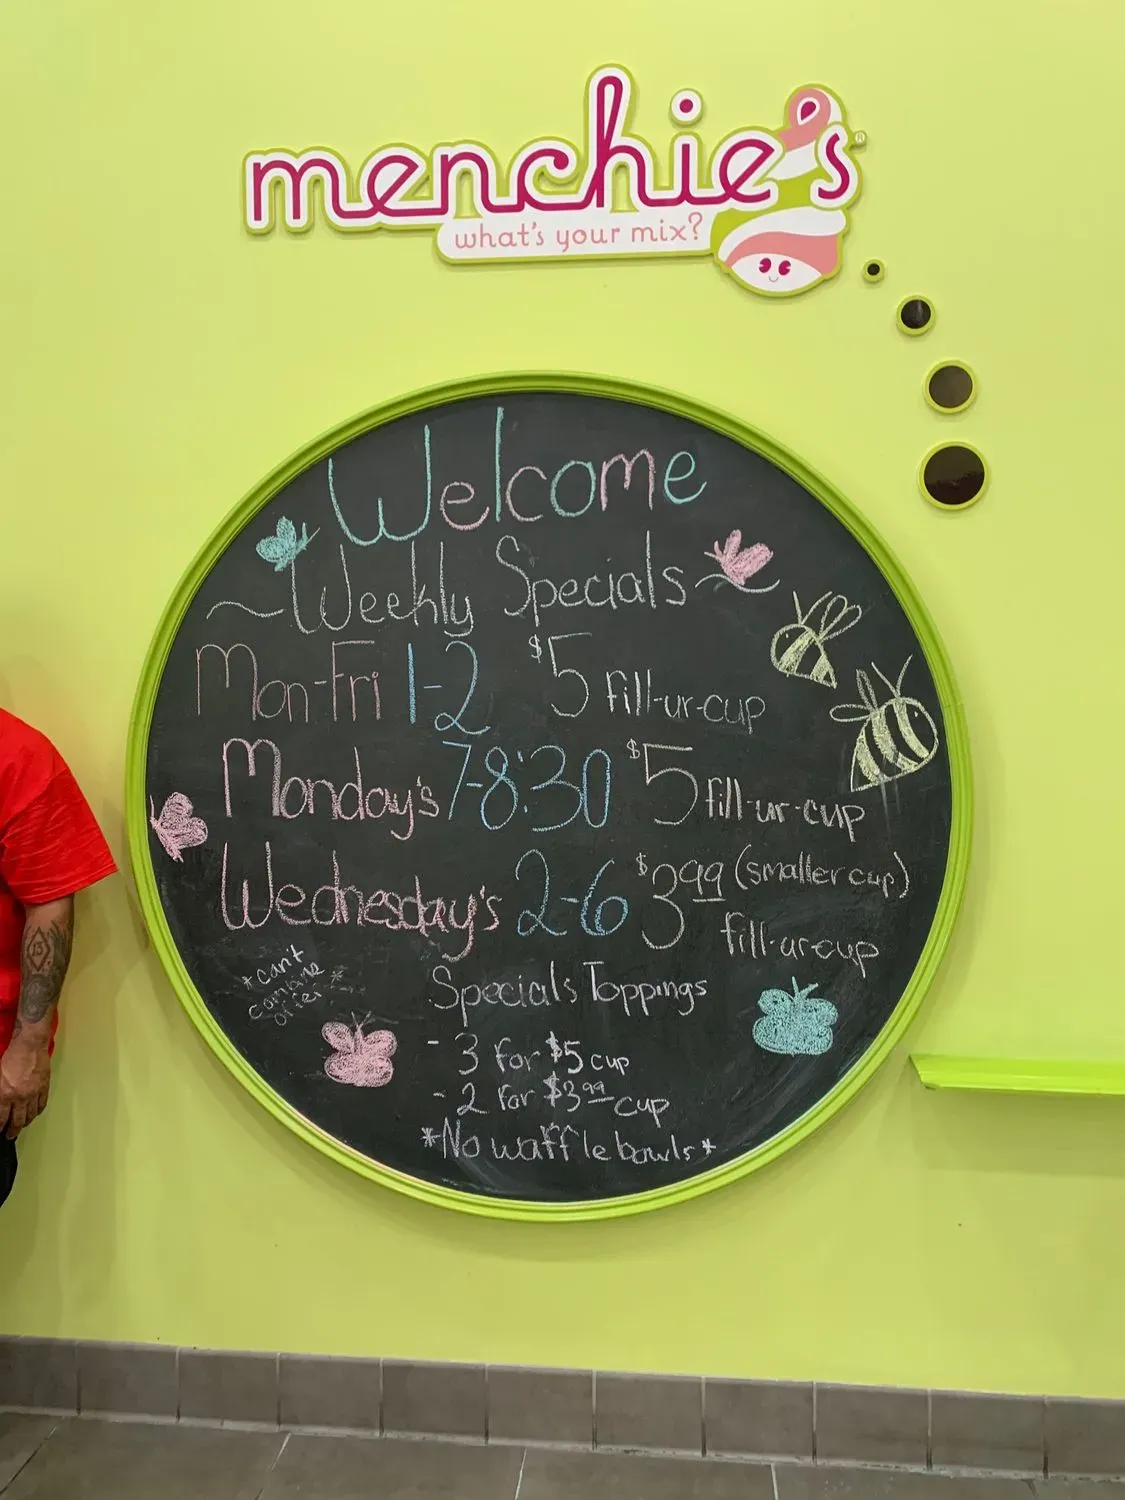 menchie's®
what's your mix?
Welcome
Weekly Specials
Mon-Fri 1-2 $5 fill-ur-cup
Monday's 7-8:30 $5 fill-ur-cup
Wednesday's 2-6 $3.99 (smaller cup)
fill-ur-cup
*can't
combine *
offer
Specials Toppings
- 3 for $5 cup
- 2 for $3.99 cup
*No waffle bowls*
13